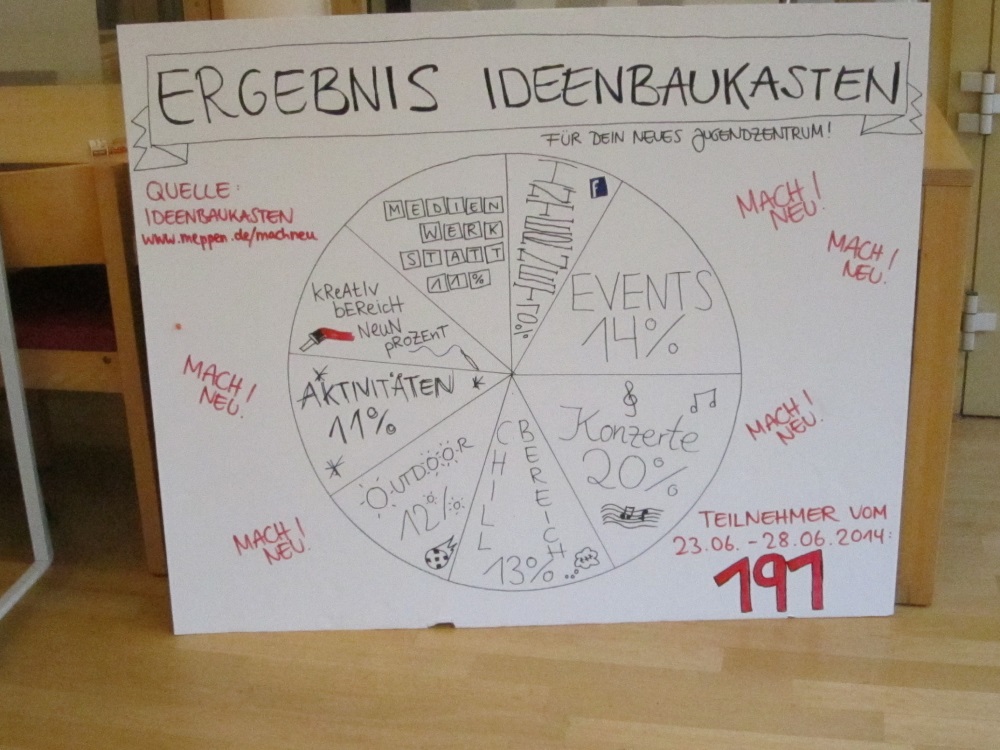 ERGEBNIS IDEENBAUKASTEN
FÜR DEIN NEUES JUGENDZENTRUM!
QUELLE:
IDEENBAUKASTEN
www.meppen.de/machneu
MACH!
NEU.
MACH!
NEU.
MEDIEN
WERK
STATT
11%
f
EVENTS
14%
KReAtIV
bEReicH
NeuN
pROZEnT
AKTIVITÄTEN
11%
OUTDOOR
12%
CHILL
BEREICH
13%
Konzerte
20%
MACH!
NEU.
MACH!
NEU.
MACH!
NEU.
TEILNEHMER VOM
23.06. - 28.06.2014:
191